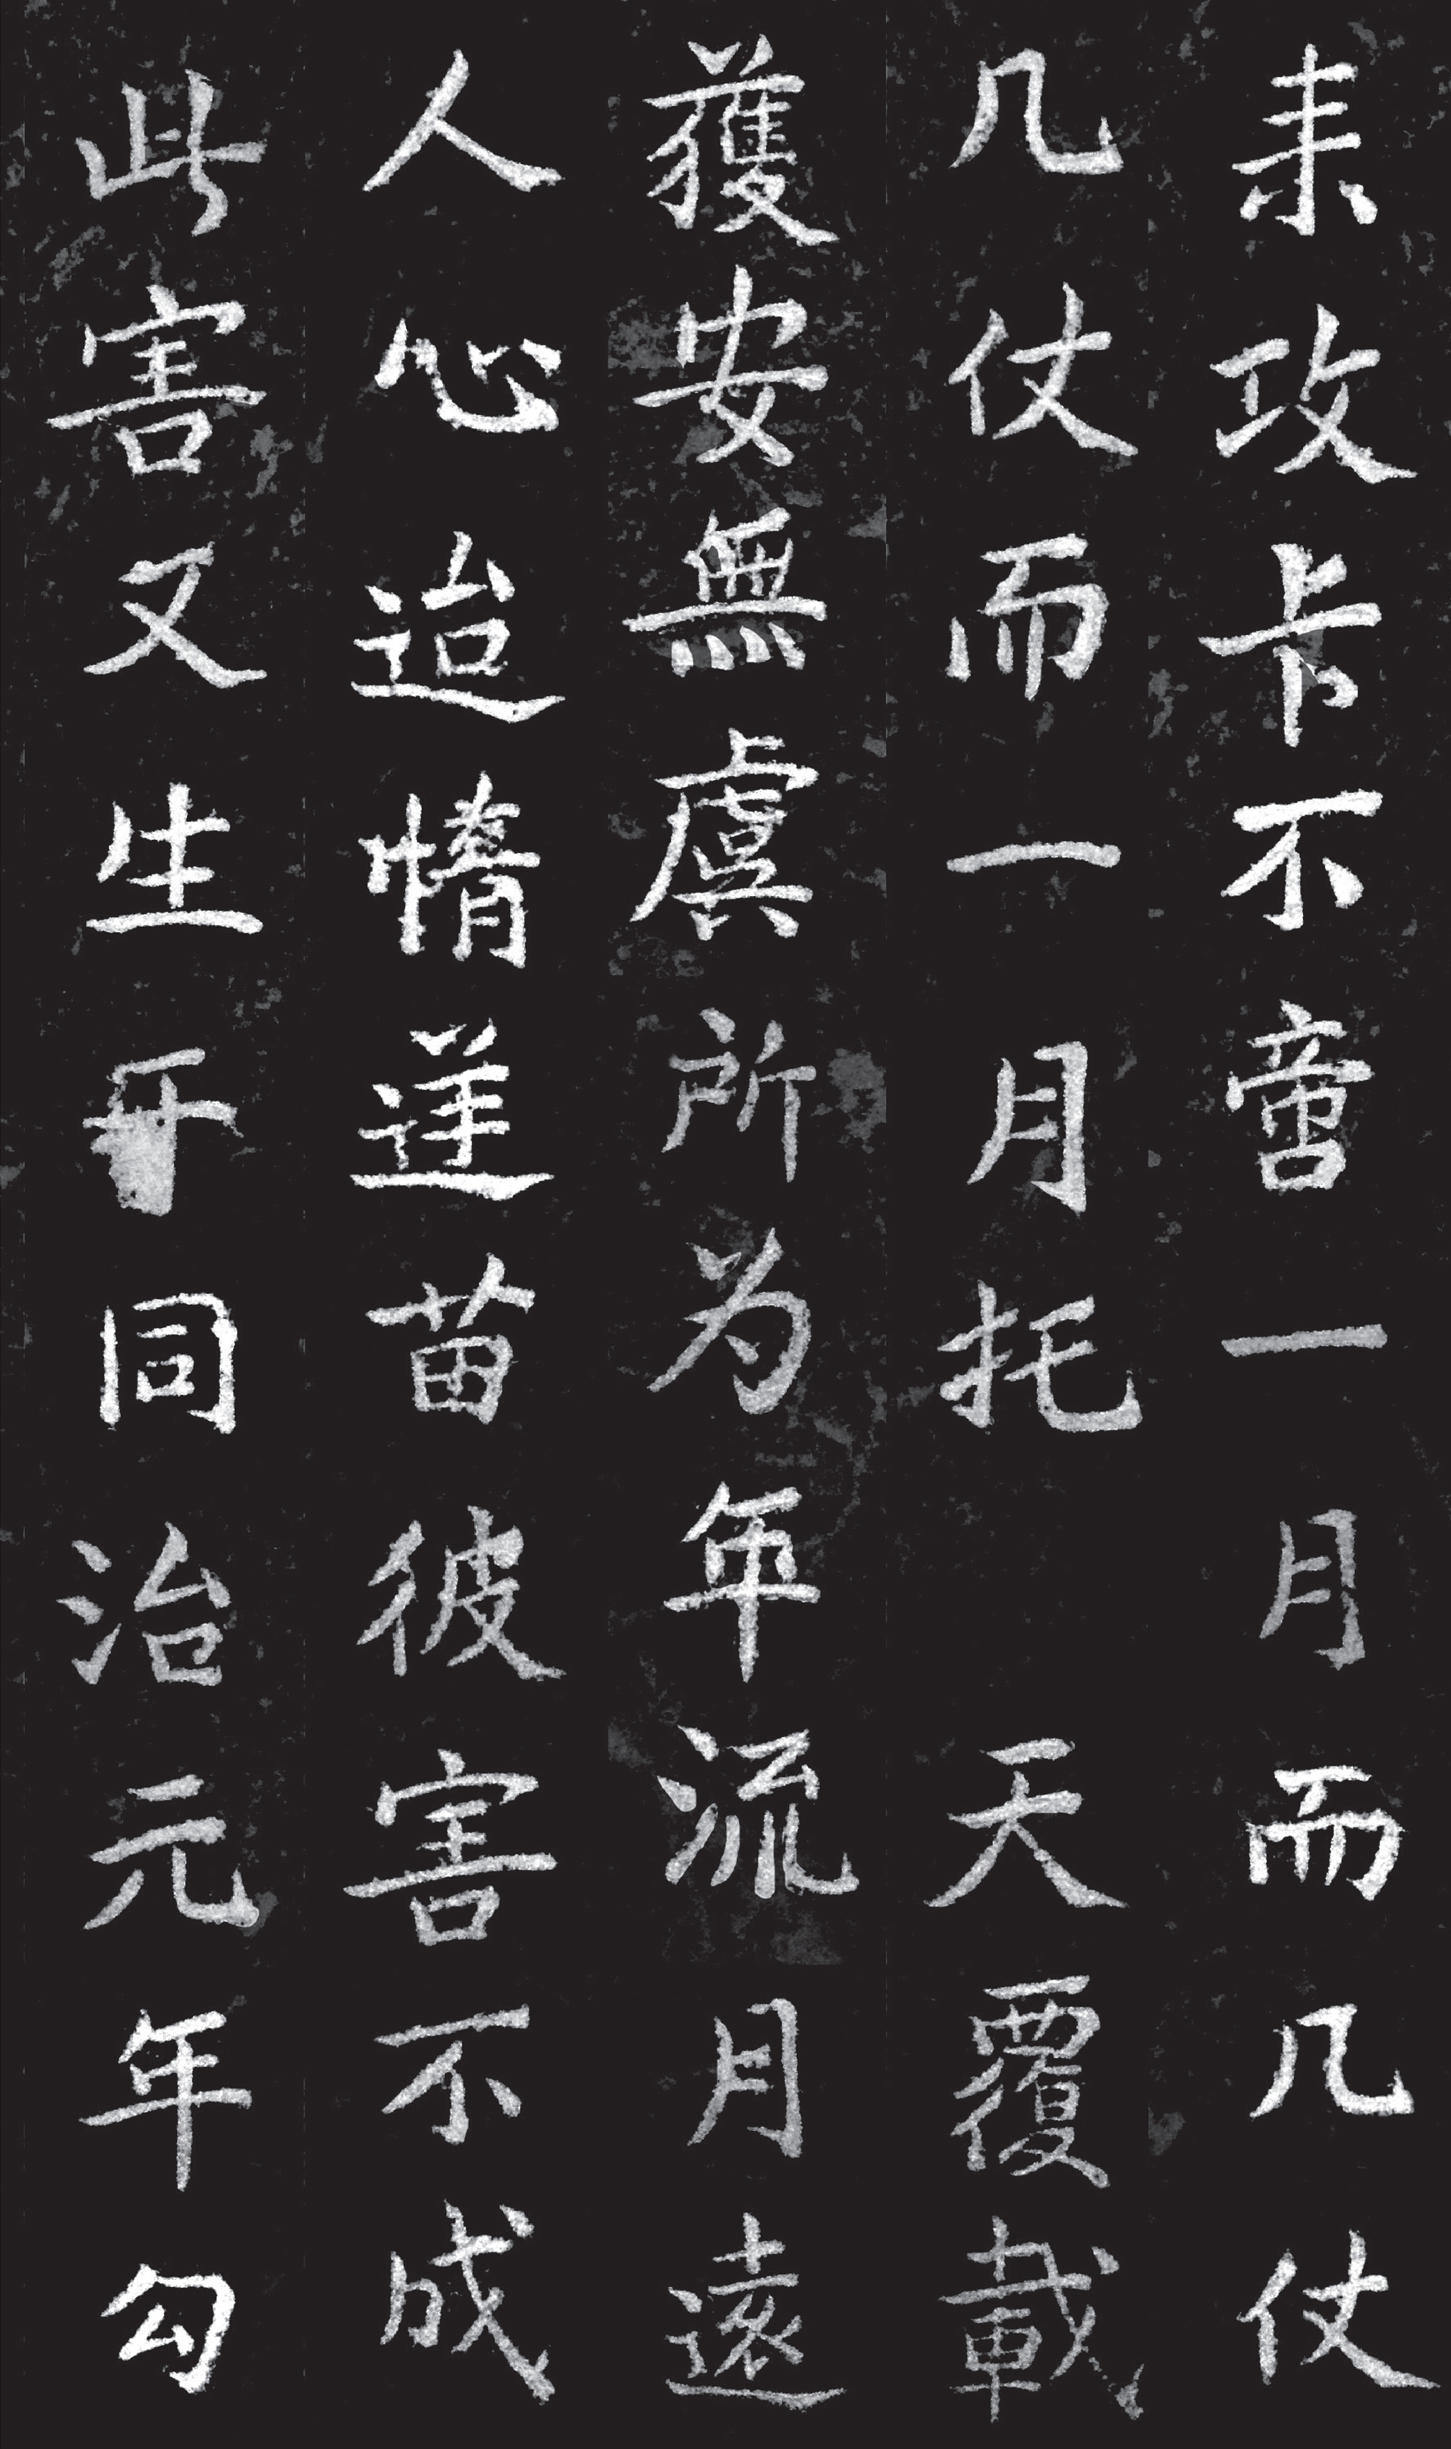 来攻卡不啻一月而几仗
几仗而一月托 天覆載
獲安無虞所为年流月遠
人心迨惰逆苗彼害不成
此害又生于同治元年勾